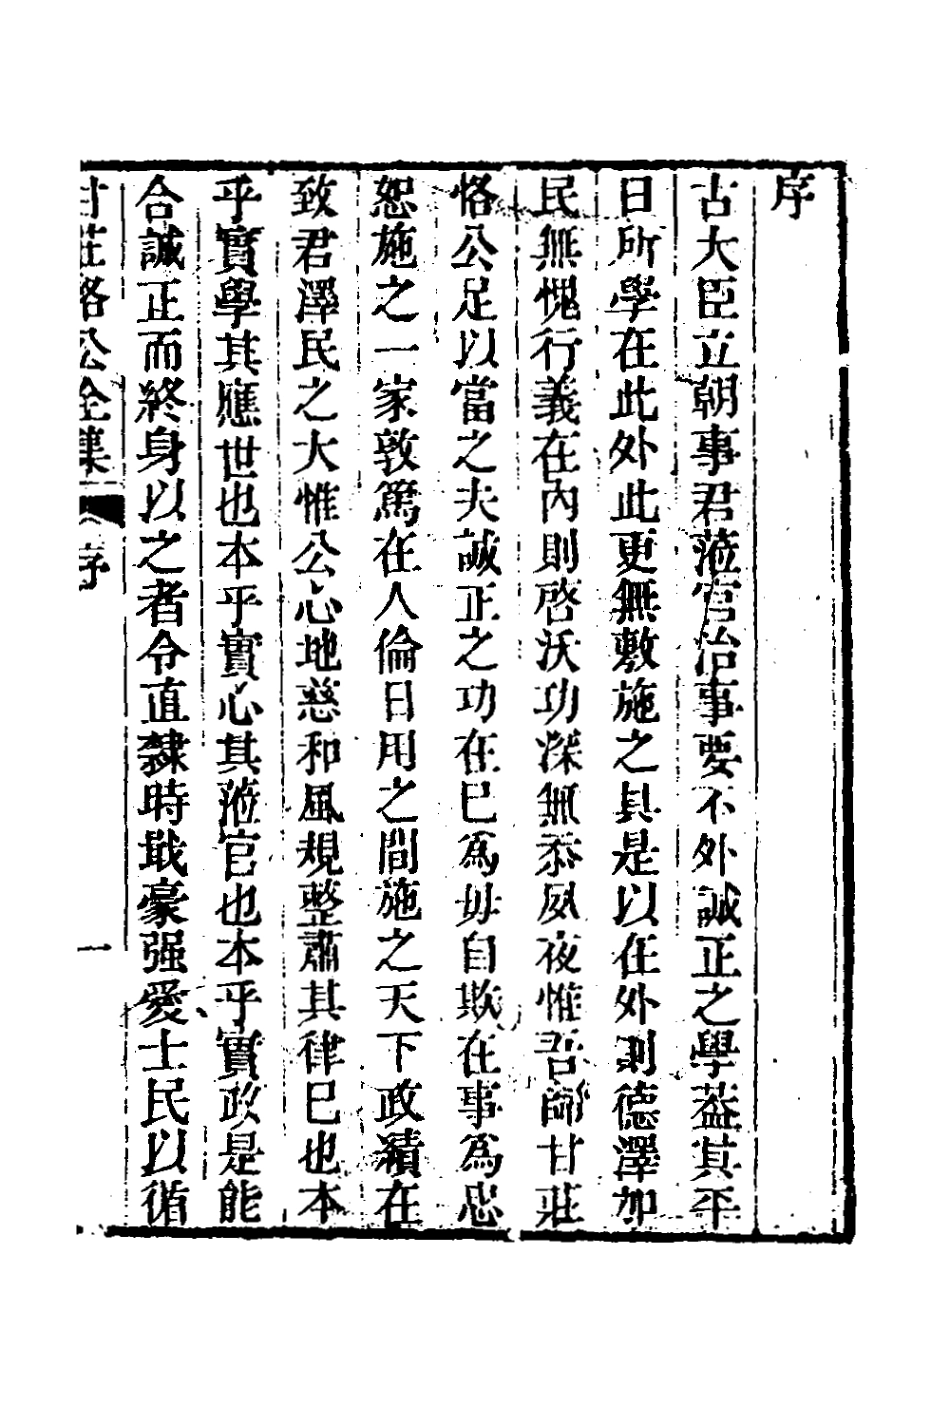 序
古大臣立朝事君蒞官治事要不外誠正之學葢其平
日所學在此外此更無敷施之具是以在外則德澤加
民無愧行義在內則啓沃功深無忝夙夜惟吾師甘莊
恪公足以當之夫誠正之功在巳爲毋自欺在事爲忠
恕施之一家敦篤在人倫日用之間施之天下政績在
致君澤民之大惟公心地慈和風規整肅其律巳也本
乎實學其應世也本乎實心其蒞官也本乎實政是能
合誠正而終身以之者令直隸時戢豪强愛士民以循
甘莊恪公全集 序 一